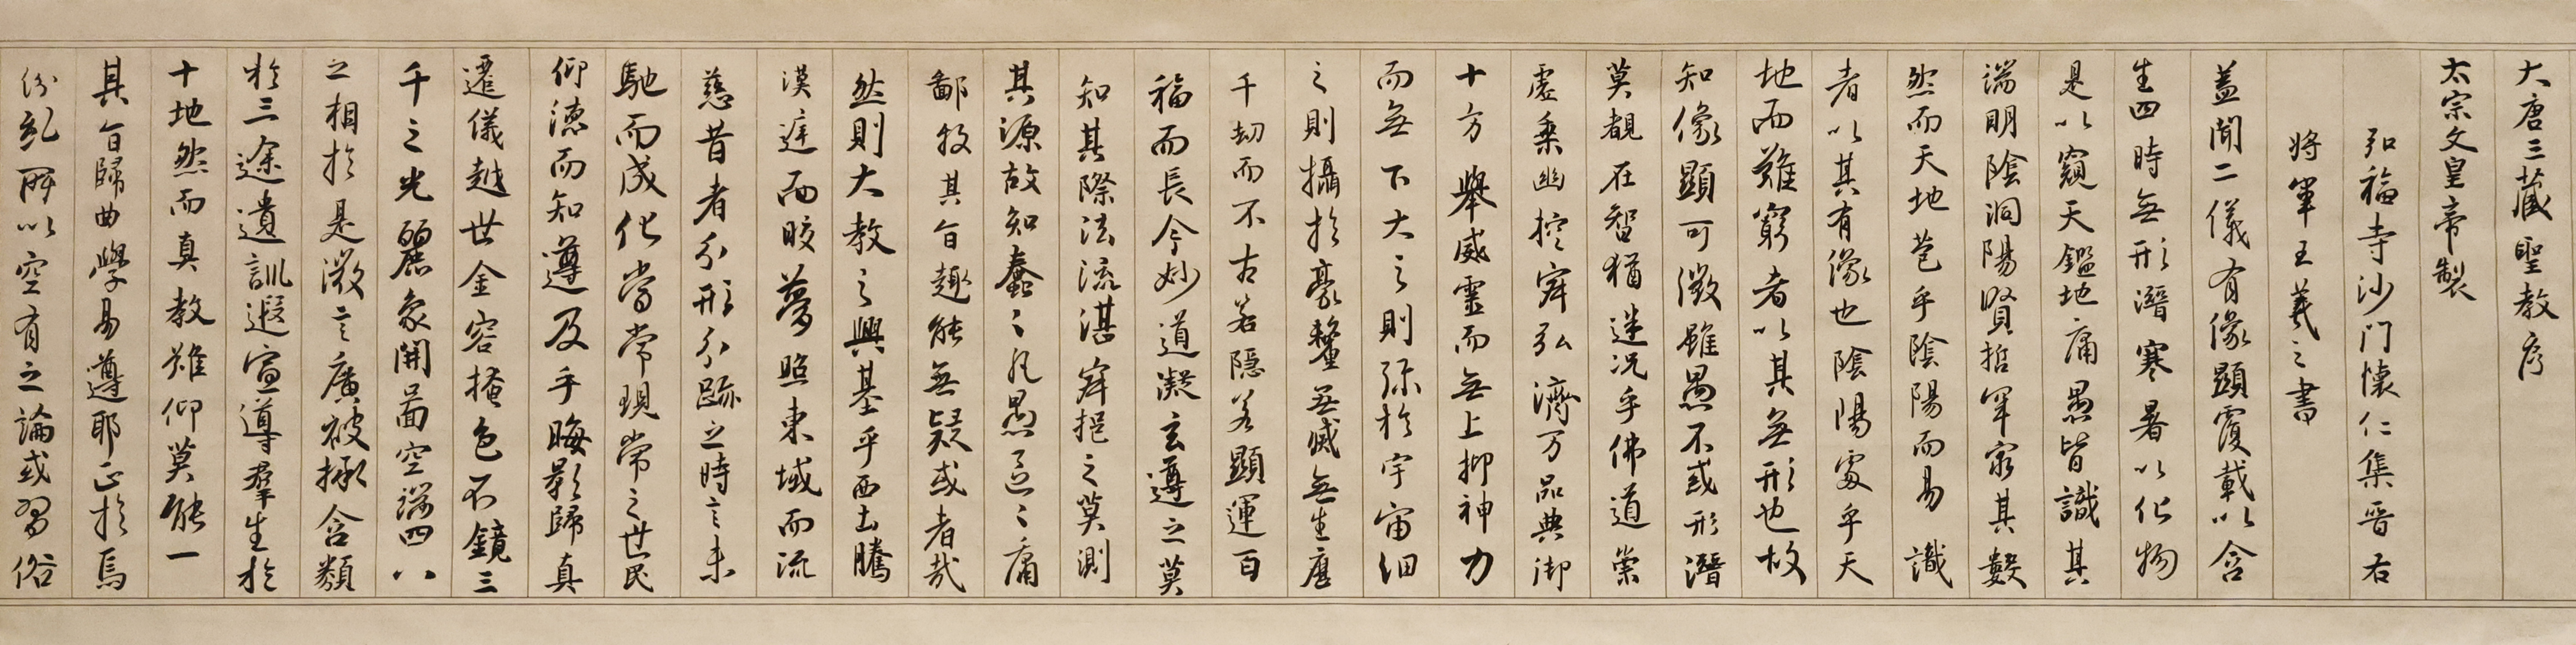 大唐三藏聖教序
太宗文皇帝製
弘福寺沙門懷仁集晉右
將軍王羲之書
蓋聞二儀有像顯覆載以含
生四時無形潛寒暑以化物
是以窺天鑑地庸愚皆識其
端明陰洞陽賢哲罕窮其數
然而天地苞乎陰陽而易識
者以其有像也陰陽處乎天
地而難窮者以其無形也故
知像顯可徵雖愚不惑形潛
莫覩在智猶迷況乎佛道崇
虛乘幽控寂弘濟万品典御
十方舉威靈而無上抑神力
而無下大之則彌於宇宙細
之則攝於豪釐無滅無生歷
千劫而不古若隱若顯運百
福而長今妙道凝玄遵之莫
知其際法流湛寂挹之莫測
其源故知蠢〻凡愚區〻庸
鄙投其旨趣能無疑或者哉
然則大教之興基乎西土騰
漢庭而皎夢照東域而流
慈昔者分形分跡之時言未
馳而成化當常現常之世民
仰德而知遵及乎晦影歸真
遷儀越世金容掩色不鏡三
千之光麗象開圖空端四八
之相於是微言廣被拯含類
於三途遺訓遐宣導群生於
十地然而真教難仰莫能一
其旨歸曲學易遵耶正於焉
紛糺所以空有之論或習俗